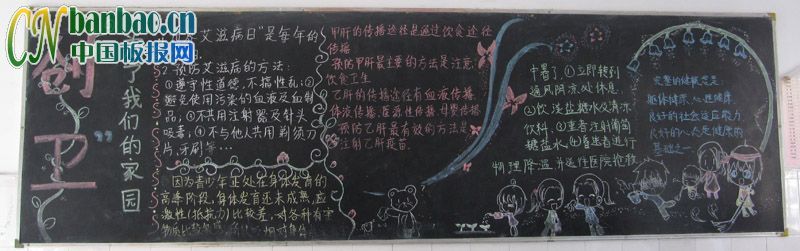 CNbanbao.cn
中国板报网
创
卫
了我们的家园
艾滋病日"是每年的
2、预防艾滋病的方法:
①遵守性道德,不搞性乱;②
避免使用污染的血液及血制
品;③不共用注射器及针头
吸毒;④不与他人共用剃须刀
片,牙刷等…
因为青少年正处在身体发育的
高峰阶段,身体发育还未成熟,应
激性(抵抗力)比较差,对各种有害
甲肝的传播途径是通过饮食途径
传播
预防甲肝最主要的方法是注意
饮食卫生
乙肝的传播途径有血液传播
体液传播,医源性传播,母婴传播
预防乙肝最有效的方法是
注射乙肝疫苗.
中暑了:①立即转到
通风阴凉处休息.
②饮淡盐糖水及清凉
饮料.③重者注射葡萄
糖盐水.④高重者进行
物理降温并送往医院抢救
完整的健康概念是
躯体健康、心理健康
良好的社会适应能力
良好的心态是健康的
基础之一